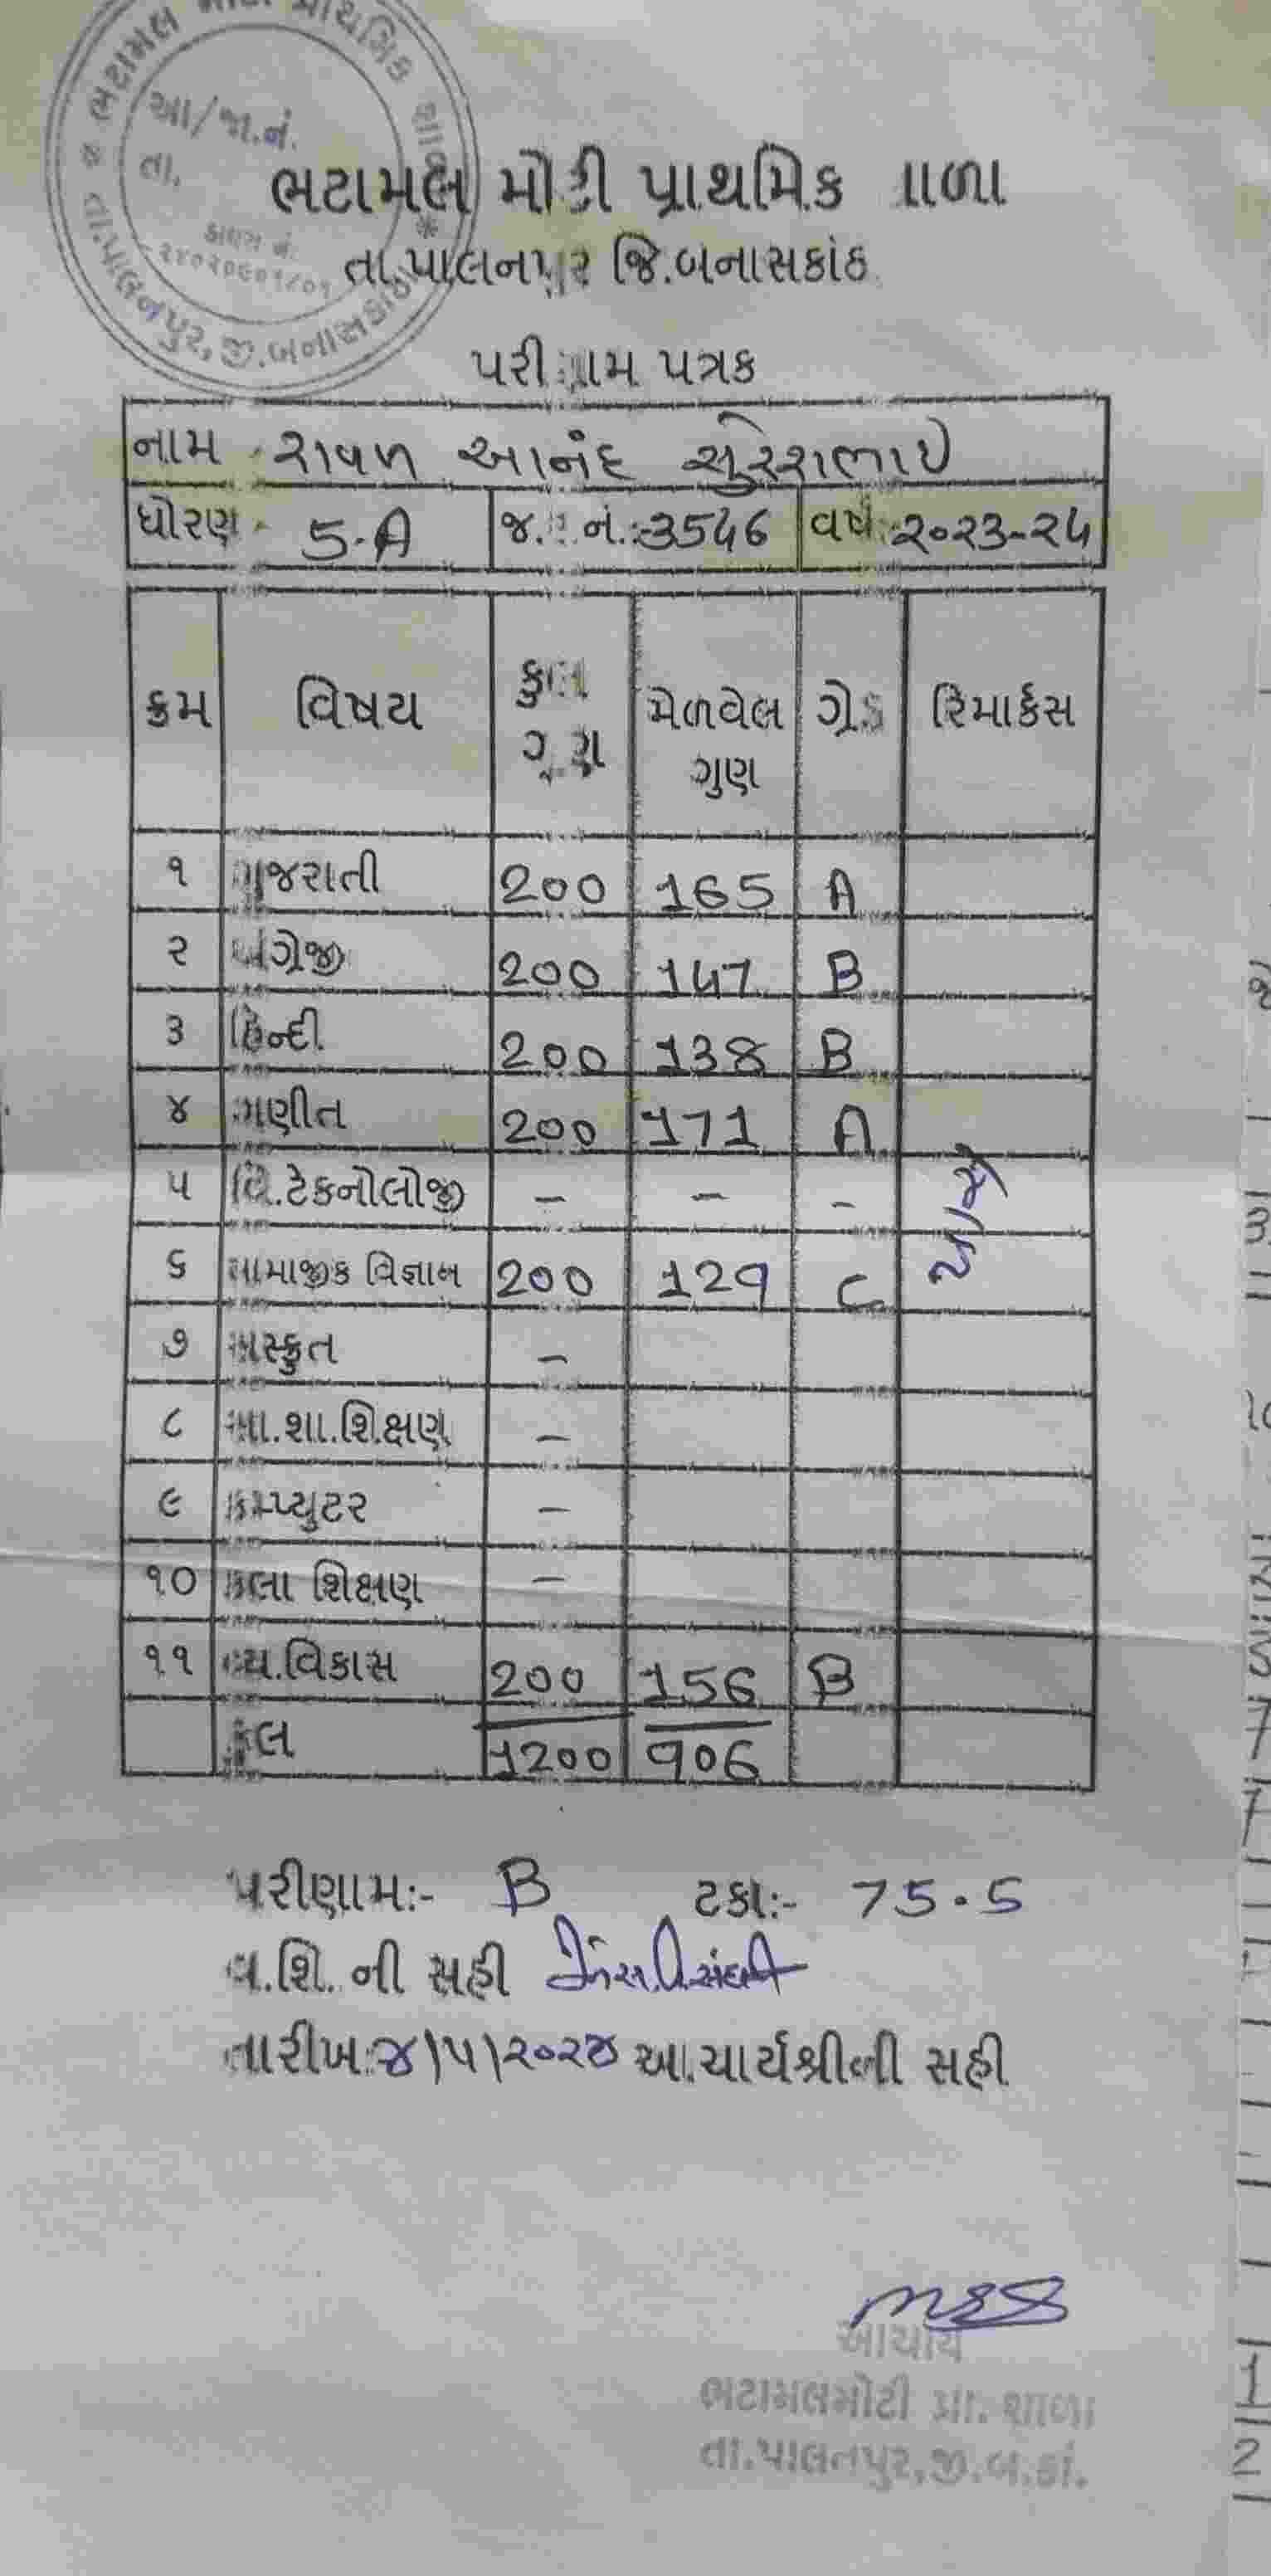 આ/જા.નં.
તા.
તા.પાલનપુર, જી.બનાસકાંઠા
ભટામલ મોટી પ્રાથમિક શાળા
તા.પાલનપુર જિ.બનાસકાંઠા
પરીણામ પત્રક
નામ રાવળ આનંદ સુરેશભાઈ
ધોરણ 5-A જ.ર.નં.:-3546 વર્ષ:-૨૦૨3-૨૪
ક્રમ વિષય કુલ ગુણ મેળવેલ ગુણ ગ્રેડ રિમાર્કસ
૧ ગુજરાતી 200 165 A
૨ અંગ્રેજી 200 147 B
૩ હિન્દી 200 138 B
૪ ગણીત 200 171 A
૫ વિ.ટેકનોલોજી - - -
૬ સામાજીક વિજ્ઞાન 200 129 C
૭ સંસ્કૃત -
૮ શા.શિક્ષણ -
૯ કમ્પ્યુટર -
૧૦ કલા શિક્ષણ -
૧૧ વ્ય.વિકાસ 200 156 B
કુલ 1200 906
પરીણામ:- B ટકા:- 75.5
વ.શિ. ની સહી
તારીખ:૪/૫/૨૦૨૪ આચાર્યશ્રીની સહી
આચાર્ય
ભટામલમોટી પ્રા. શાળા
તા.પાલનપુર,જી.બ.કાં.